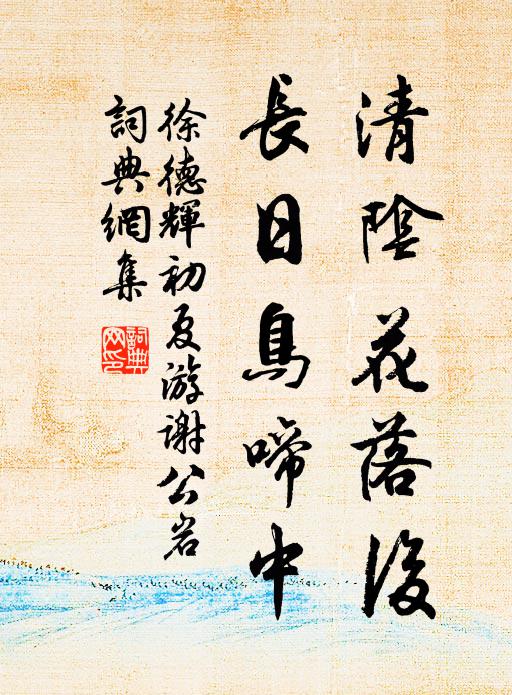 清陰花落後
長日鳥啼中
徐德輝初夏游谢公岩
詞典網集
詞典
网印